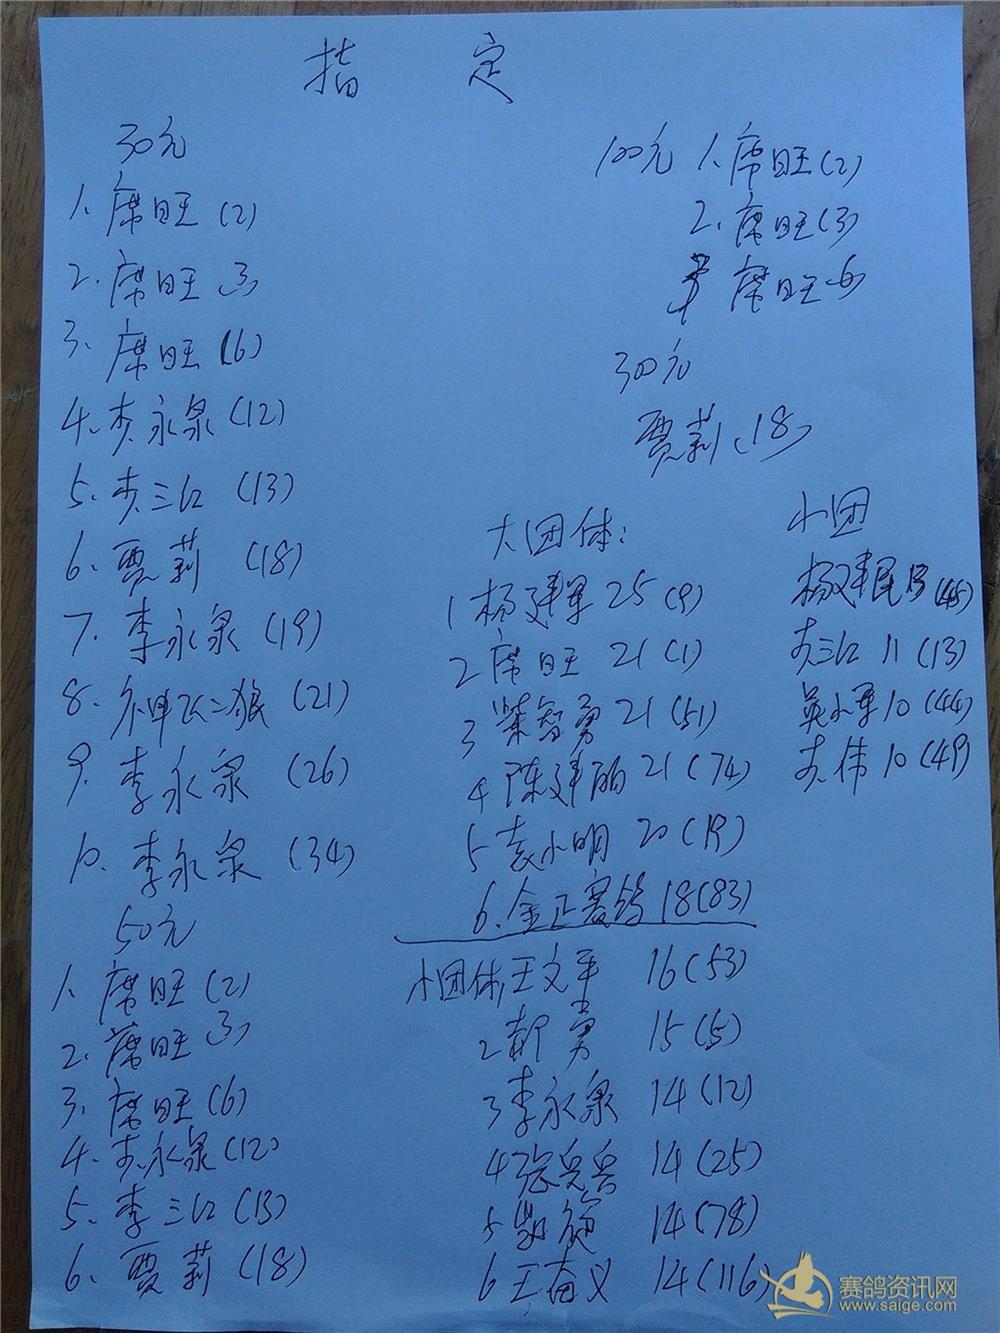 指 定
30元
1、席旺(2)
2、席旺(3)
3、席旺(6)
4、李永泉(12)
5、李三江(13)
6、贾莉(18)
7、李永泉(19)
8、神飞二狼(21)
9、李永泉(26)
10、李永泉(34)
50元
1、席旺(2)
2、席旺(3)
3、席旺(6)
4、李永泉(12)
5、李三江(13)
6、贾莉(18)
100元 1、席旺(2)
2、席旺(3)
3 席旺6
300元
贾莉(18)
大团体:
1杨建军25(9)
2席旺21(1)
3柴智勇21(51)
4陈建丽21(74)
5袁小明20(19)
6、金正赛鸽18(83)
小团
杨建民13(45)
李三江11(13)
吴小军10(44)
李伟10(49)
小团体1王文平16(53)
2郝勇15(5)
3李永泉14(12)
4张兵兵14(25)
5 14(78)
6王奋义14(116)
赛鸽资讯网
www.saige.com